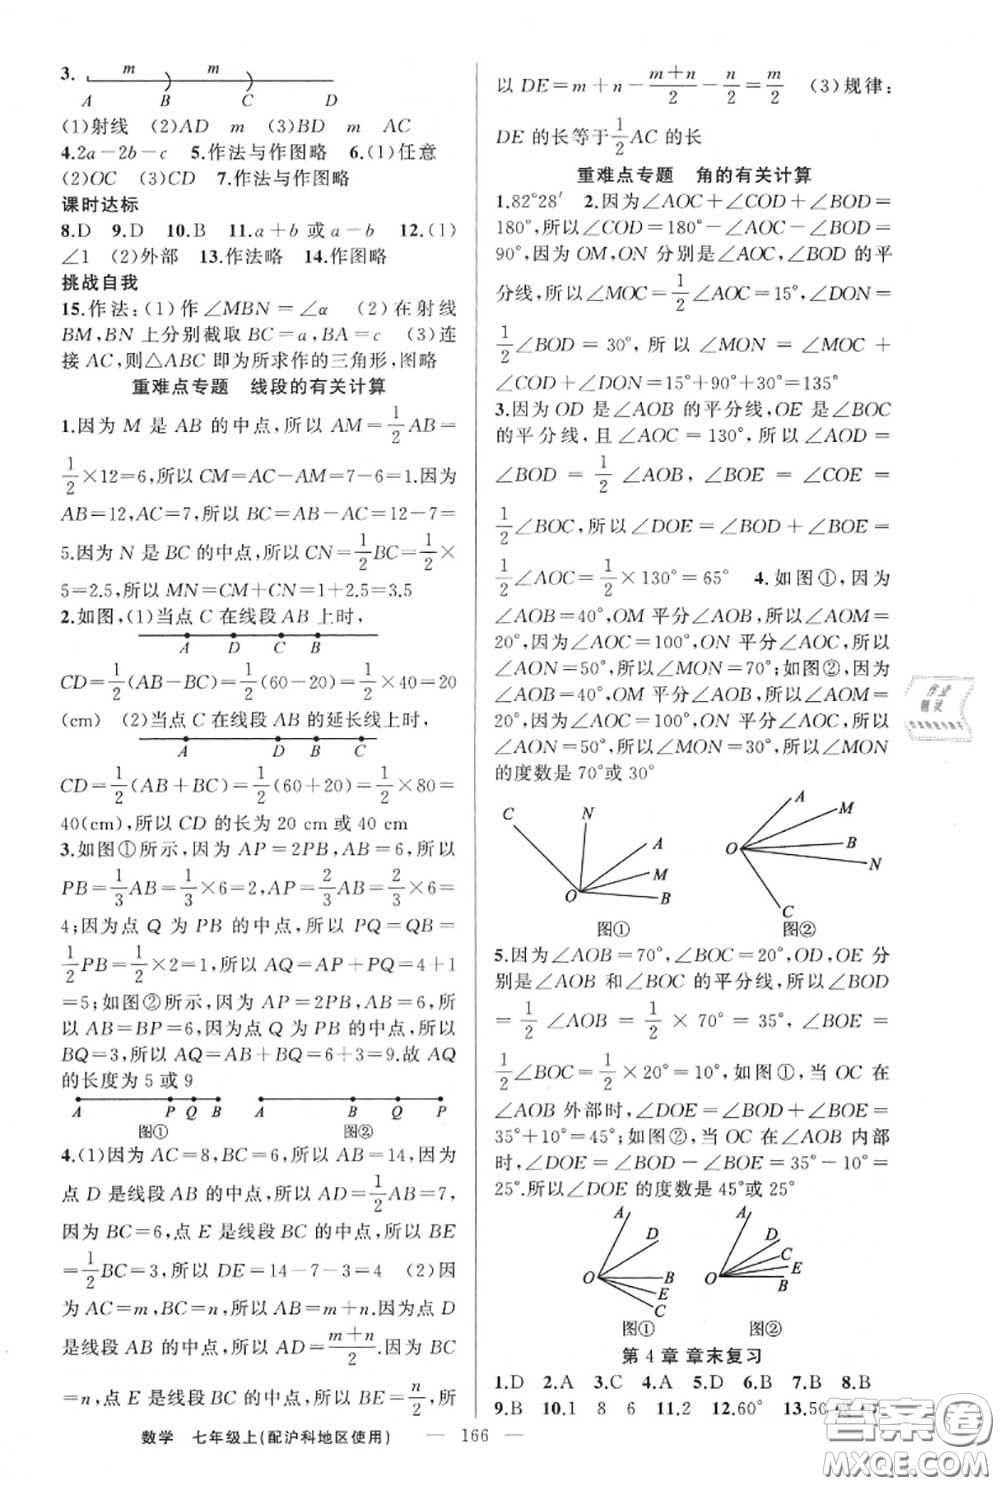 3.
m m
A B C D
(1)射线 (2)AD m (3)BD m AC
4.2a-2b-c 5.作法与作图略 6.(1)任意
(2)OC (3)CD 7.作法与作图略
课时达标
8.D 9.D 10.B 11.a+b 或 a-b 12.(1)
∠1 (2)外部 13.作法略 14.作图略
挑战自我
15.作法:(1)作∠MBN=∠α (2)在射线
BM,BN 上分别截取 BC=a,BA=c (3)连
接 AC,则△ABC 即为所求作的三角形,图略
重难点专题 线段的有关计算
1.因为 M 是 AB 的中点,所以 AM=1/2AB=
1/2×12=6,所以 CM=AC-AM=7-6=1.因为
AB=12,AC=7,所以 BC=AB-AC=12-7=
5.因为 N 是 BC 的中点,所以 CN=1/2BC=1/2×
5=2.5,所以 MN=CM+CN=1+2.5=3.5
2.如图,(1)当点 C 在线段 AB 上时,
A D C B
CD=1/2(AB-BC)=1/2(60-20)=1/2×40=20
(cm) (2)当点 C 在线段 AB 的延长线上时,
A D B C
CD=1/2(AB+BC)=1/2(60+20)=1/2×80=
40(cm),所以 CD 的长为 20 cm 或 40 cm
3.如图①所示,因为 AP=2PB,AB=6,所以
PB=1/3AB=1/3×6=2,AP=2/3AB=2/3×6=
4;因为点 Q 为 PB 的中点,所以 PQ=QB=
1/2PB=1/2×2=1,所以 AQ=AP+PQ=4+1
=5;如图②所示,因为 AP=2PB,AB=6,所
以 AB=BP=6,因为点 Q 为 PB 的中点,所以
BQ=3,所以 AQ=AB+BQ=6+3=9.故 AQ
的长度为 5 或 9
A P Q B A B Q P
图① 图②
4.(1)因为 AC=8,BC=6,所以 AB=14,因为
点 D 是线段 AB 的中点,所以 AD=1/2AB=7,
因为 BC=6,点 E 是线段 BC 的中点,所以 BE
=1/2BC=3,所以 DE=14-7-3=4 (2)因
为 AC=m,BC=n,所以 AB=m+n.因为点 D
是线段 AB 的中点,所以 AD=(m+n)/2.因为 BC
=n,点 E 是线段 BC 的中点,所以 BE=n/2,所
以 DE=m+n-(m+n)/2-n/2=m/2 (3)规律:
DE 的长等于1/2AC 的长
重难点专题 角的有关计算
1.82°28′ 2.因为∠AOC+∠COD+∠BOD=
180°,所以∠COD=180°-∠AOC-∠BOD=
90°,因为 OM,ON 分别是∠AOC,∠BOD 的平
分线,所以∠MOC=1/2∠AOC=15°,∠DON=
1/2∠BOD=30°,所以∠MON=∠MOC+
∠COD+∠DON=15°+90°+30°=135°
3.因为 OD 是∠AOB 的平分线,OE 是∠BOC
的平分线,且∠AOC=130°,所以∠AOD=
∠BOD=1/2∠AOB,∠BOE=∠COE=
1/2∠BOC,所以∠DOE=∠BOD+∠BOE=
1/2∠AOC=1/2×130°=65° 4.如图①,因为
∠AOB=40°,OM 平分∠AOB,所以∠AOM=
20°,因为∠AOC=100°,ON 平分∠AOC,所以
∠AON=50°,所以∠MON=70°;如图②,因为
∠AOB=40°,OM 平分∠AOB,所以∠AOM=
20°,因为∠AOC=100°,ON 平分∠AOC,所以
∠AON=50°,所以∠MON=30°,所以∠MON
的度数是 70°或 30°
C N A M B O
图①
A M B N O C
图②
5.因为∠AOB=70°,∠BOC=20°,OD,OE 分
别是∠AOB 和∠BOC 的平分线,所以∠BOD
=1/2∠AOB=1/2×70°=35°,∠BOE=
1/2∠BOC=1/2×20°=10°,如图①,当 OC 在
∠AOB 外部时,∠DOE=∠BOD+∠BOE=
35°+10°=45°;如图②,当 OC 在∠AOB 内部
时,∠DOE=∠BOD-∠BOE=35°-10°=
25°.所以∠DOE 的度数是 45°或 25°
A D O B E C
图①
A D C E B O
图②
第 4 章 章末复习
1.D 2.A 3.C 4.A 5.D 6.B 7.B 8.B
9.B 10.1 8 6 11.2 12.60° 13.50
数学 七年级上(配沪科地区使用) — 166 —
作业
精灵
答案圈
MXQE.COM